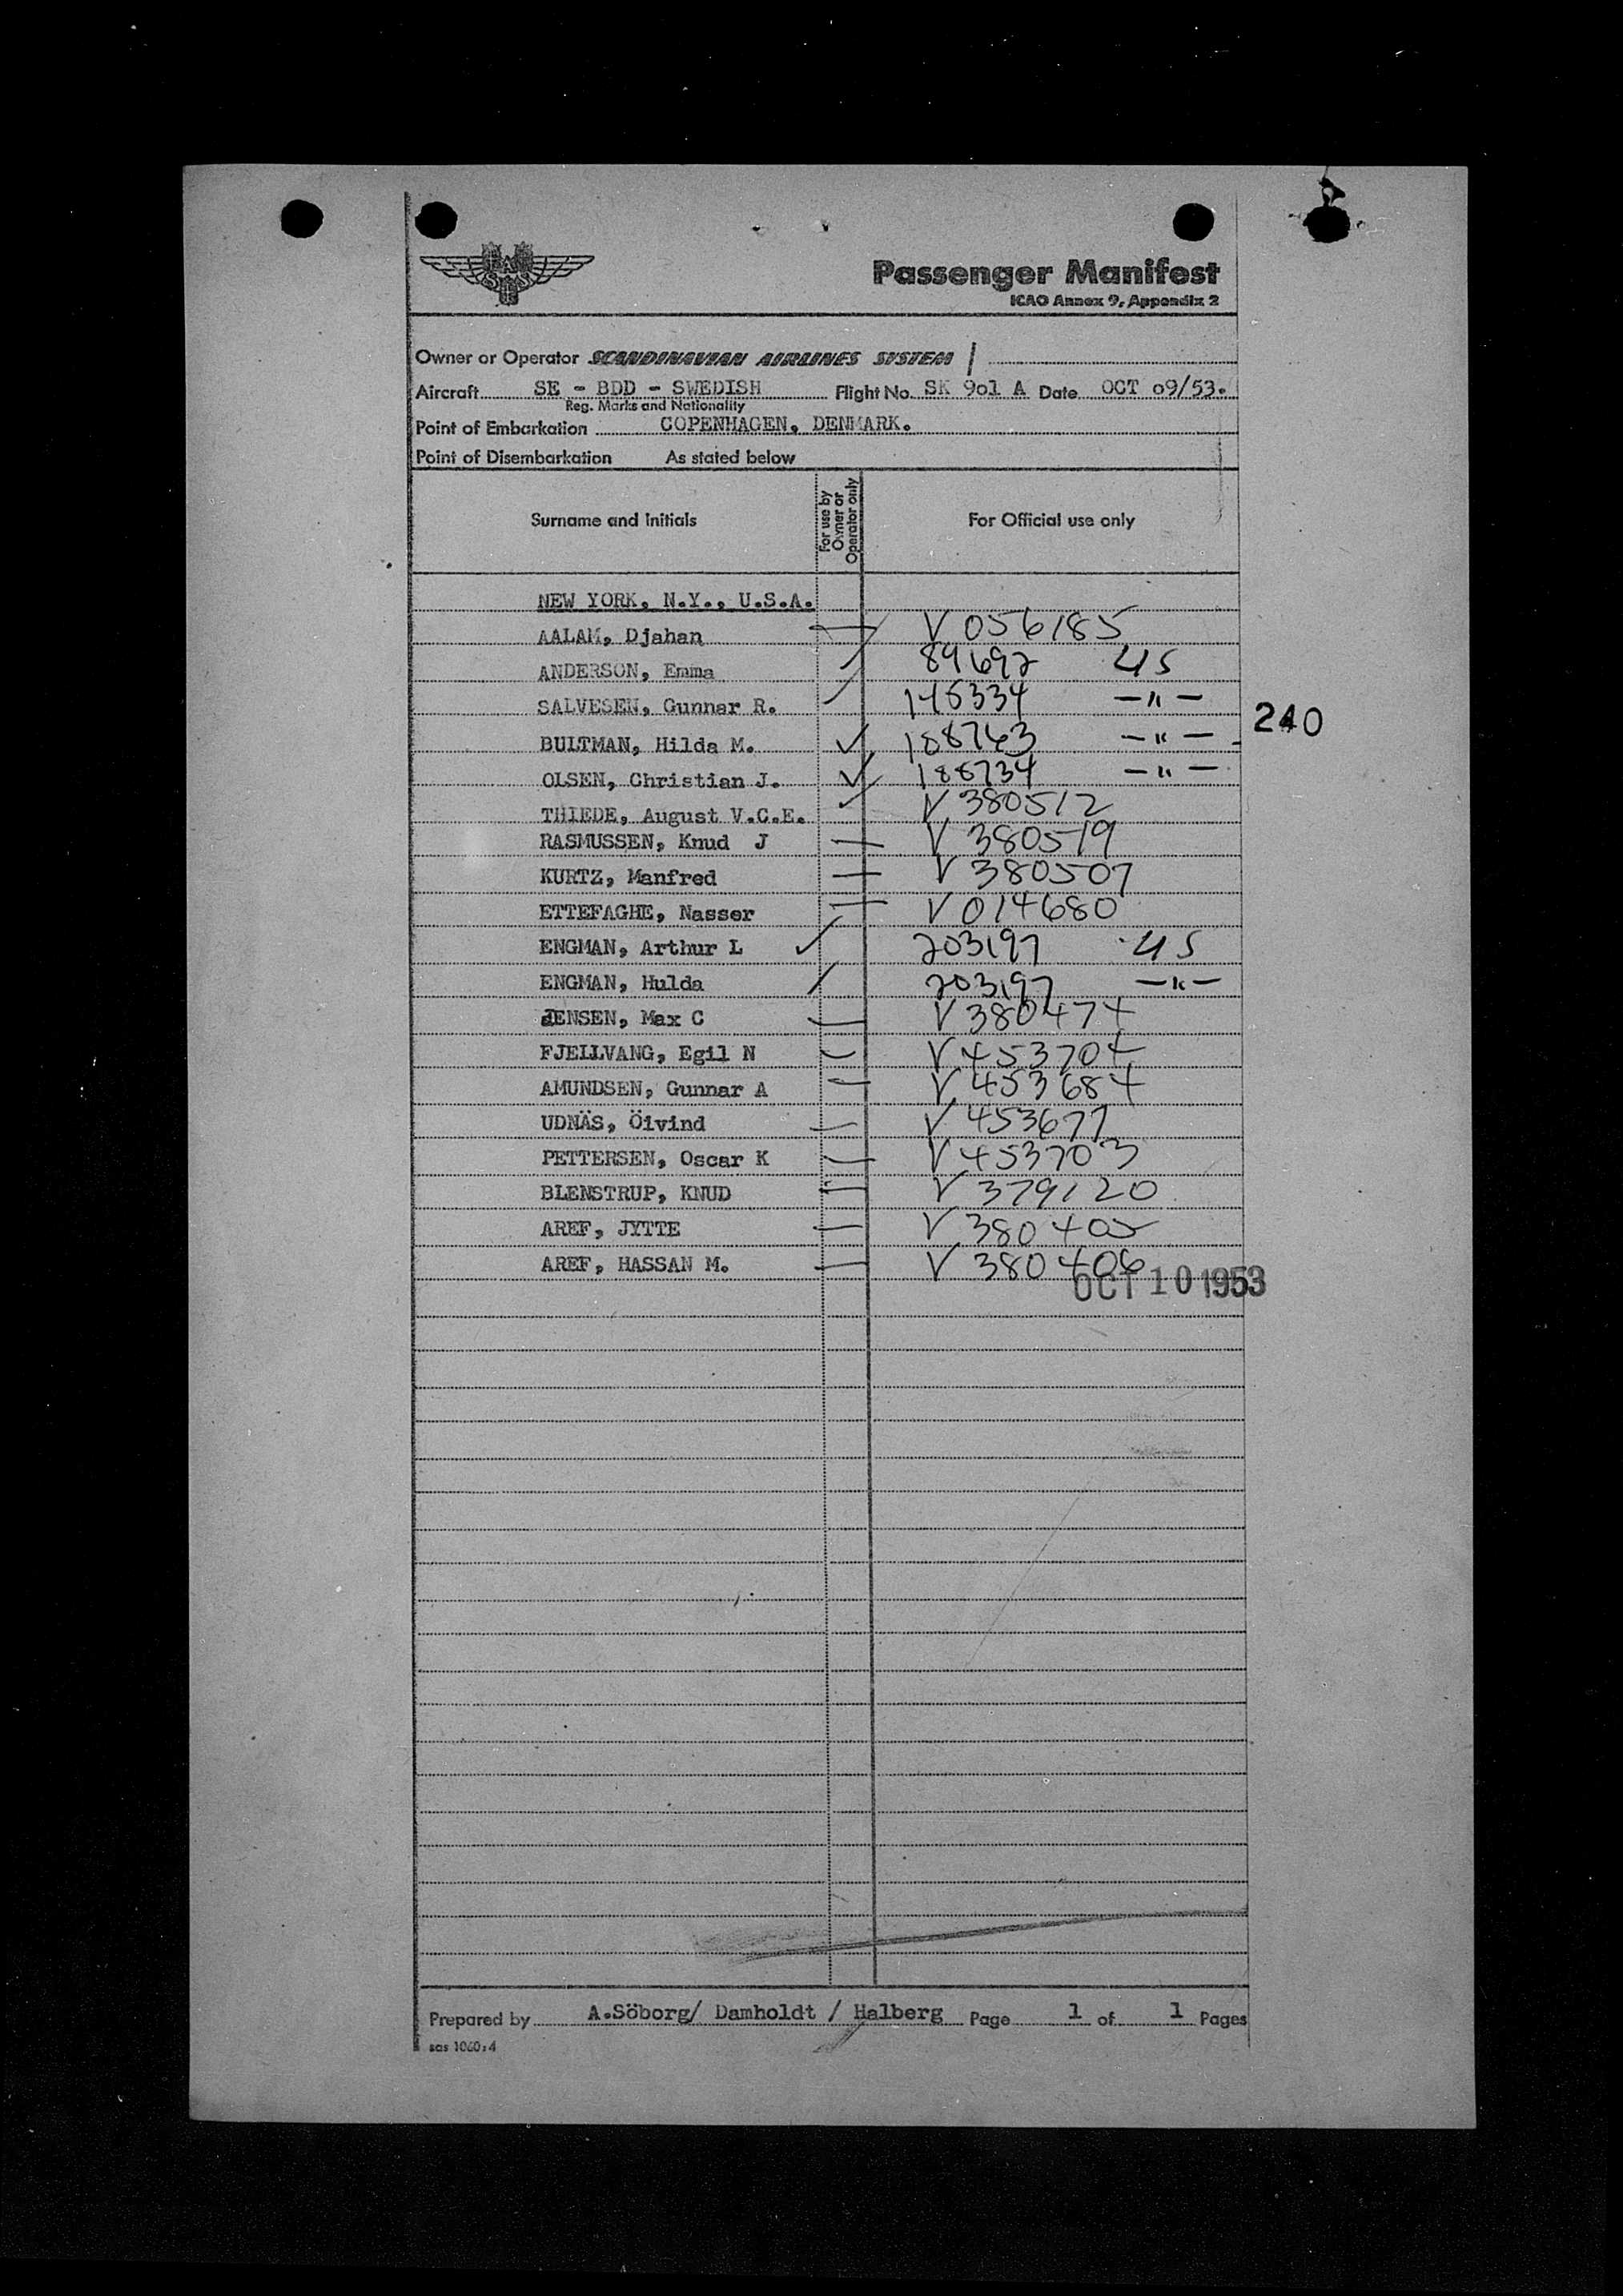 SAS
Passenger Manifest
ICAO Annex 9, Appendix 2
Owner or Operator SCANDINAVIAN AIRLINES SYSTEM
Aircraft SE - BDD - SWEDISH Flight No. SK 9o1 A Date OCT o9/53.
Reg. Marks and Nationality
Point of Embarkation COPENHAGEN, DENMARK.
Point of Disembarkation As stated below
Surname and Initials For use by Owner or Operator only For Official use only
NEW YORK, N.Y., U.S.A.
AALAM, Djahan V 056185
ANDERSON, Emma 89692 US
SALVESEN, Gunnar R. 145334 —"—
240
BULTMAN, Hilda M. 188763 —"—
OLSEN, Christian J. 188734 —"—
THIEDE, August V.C.E. V 380512
RASMUSSEN, Knud J V 380519
KURTZ, Manfred V 380507
ETTEFAGHE, Nasser V 014680
ENGMAN, Arthur L 203197 US
ENGMAN, Hulda 203197 —"—
JENSEN, Max C V 380474
FJELLVANG, Egil N V 453704
AMUNDSEN, Gunnar A V 453684
UDNÄS, Öivind V 453677
PETTERSEN, Oscar K V 453703
BLENSTRUP, KNUD V 379120
AREF, JYTTE V 380405
AREF, HASSAN M. V 380406
OCT 10 1953
Prepared by A.Söborg/ Damholdt / Halberg Page 1 of 1 Pages
sas 1060:4